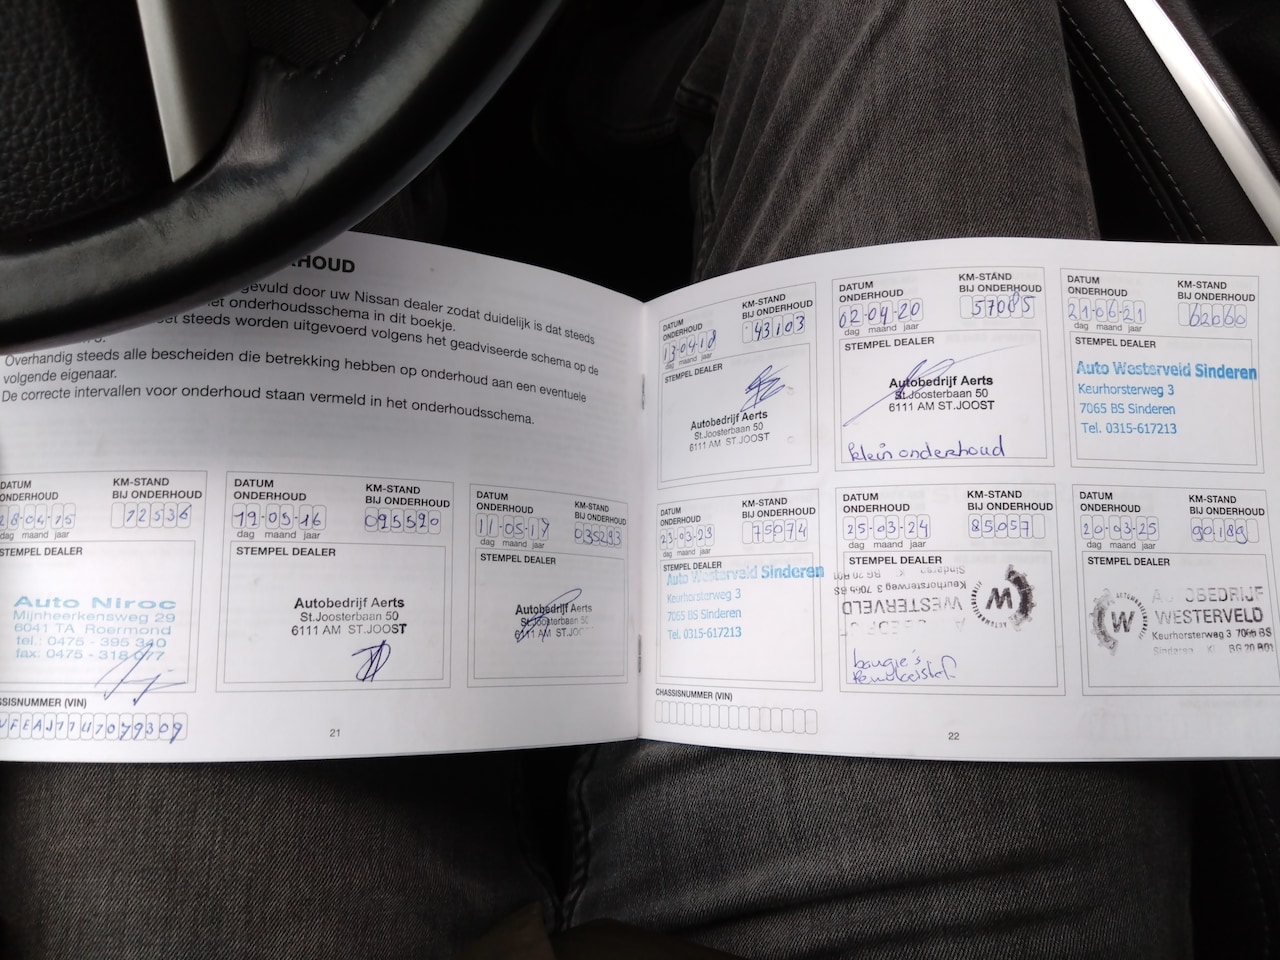 HOUD
gevuld door uw Nissan dealer zodat duidelijk is dat steeds
het onderhoudsschema in dit boekje.
steeds worden uitgevoerd volgens het geadviseerde schema op de
Overhandig steeds alle bescheiden die betrekking hebben op onderhoud aan een eventuele
volgende eigenaar.
De correcte intervallen voor onderhoud staan vermeld in het onderhoudsschema.
DATUM
ONDERHOUD
KM-STAND
BIJ ONDERHOUD
28-04-15
12536
dag maand jaar
STEMPEL DEALER
Auto Niroc
Mijnheerkensweg 29
6041 TA Roermond
tel.: 0475 - 395 340
fax: 0475 - 318 077
DATUM
ONDERHOUD
KM-STAND
BIJ ONDERHOUD
19-05-16
dag maand jaar
STEMPEL DEALER
Autobedrijf Aerts
St.Joosterbaan 50
6111 AM ST.JOOST
DATUM
ONDERHOUD
KM-STAND
BIJ ONDERHOUD
11-05-17
035293
dag maand jaar
STEMPEL DEALER
Autobedrijf Aerts
St.Joosterbaan 50
6111 AM ST.JOO
SISNUMMER (VIN)
21
DATUM
ONDERHOUD
KM-STAND
BIJ ONDERHOUD
13-04-18
43103
dag maand jaar
STEMPEL DEALER
Autobedrijf Aerts
St.Joosterbaan 50
6111 AM ST.JOOST
DATUM
ONDERHOUD
KM-STAND
BIJ ONDERHOUD
02-04-20
57085
dag maand jaar
STEMPEL DEALER
Autobedrijf Aerts
St.Joosterbaan 50
6111 AM ST.JOOST
klein onderhoud
DATUM
ONDERHOUD
KM-STAND
BIJ ONDERHOUD
21-06-21
62060
dag maand jaar
STEMPEL DEALER
Auto Westerveld Sinderen
Keurhorsterweg 3
7065 BS Sinderen
Tel. 0315-617213
DATUM
ONDERHOUD
KM-STAND
BIJ ONDERHOUD
23-03-23
75074
dag maand jaar
STEMPEL DEALER
Auto Westerveld Sinderen
Keurhorsterweg 3
7065 BS Sinderen
Tel. 0315-617213
DATUM
ONDERHOUD
KM-STAND
BIJ ONDERHOUD
25-03-24
85057
dag maand jaar
STEMPEL DEALER
W
WESTERVELD
Keurhorsterweg 3 7065 BS
Sinderen
bougie's
DATUM
ONDERHOUD
KM-STAND
BIJ ONDERHOUD
20-03-25
90189
dag maand jaar
STEMPEL DEALER
W
WESTERVELD
Keurhorsterweg 3 7065 BS
Sinderen
CHASSISNUMMER (VIN)
22